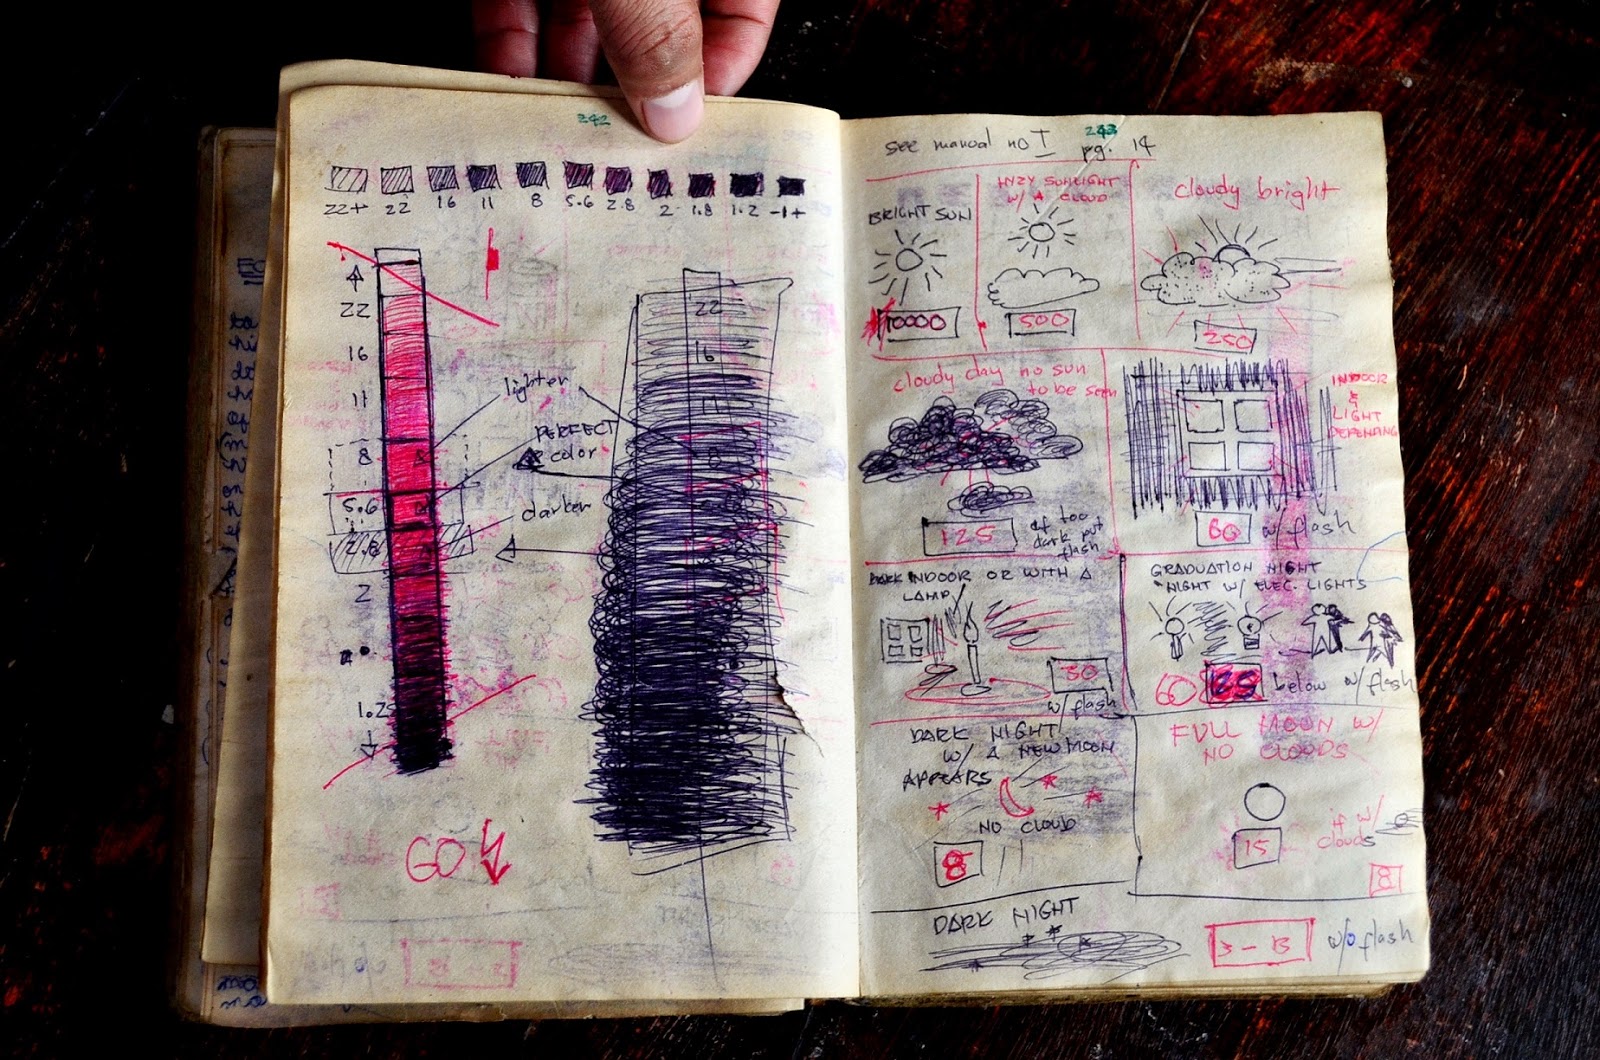 242
22+ 22 16 11 8 5.6 2.8 2 1.8 1.2 -1+
22
16
11
8
5.6
2.8
2
1.2
lighter
PERFECT
color
darker
22
16
11
8
GO
see manual no I
243
pg. 14
BRIGHT SUN
HYZY SUNLIGHT
W/ A CLOUD
cloudy bright
1000
500
250
cloudy day no sun
to be seen
INDOOR
&
LIGHT
DEPENDING
125
if too
dark put
flash
60 w/ flash
DARK INDOOR OR WITH A
LAMP
30
w/ flash
GRADUATION NIGHT
NIGHT W/ ELEC. LIGHTS
60 125 below w/ flash
DARK NIGHT
W/ A NEW MOON
APPEARS
NO CLOUD
8
FULL MOON W/
NO CLOUDS
15
if w/
clouds
8
DARK NIGHT
w/o flash